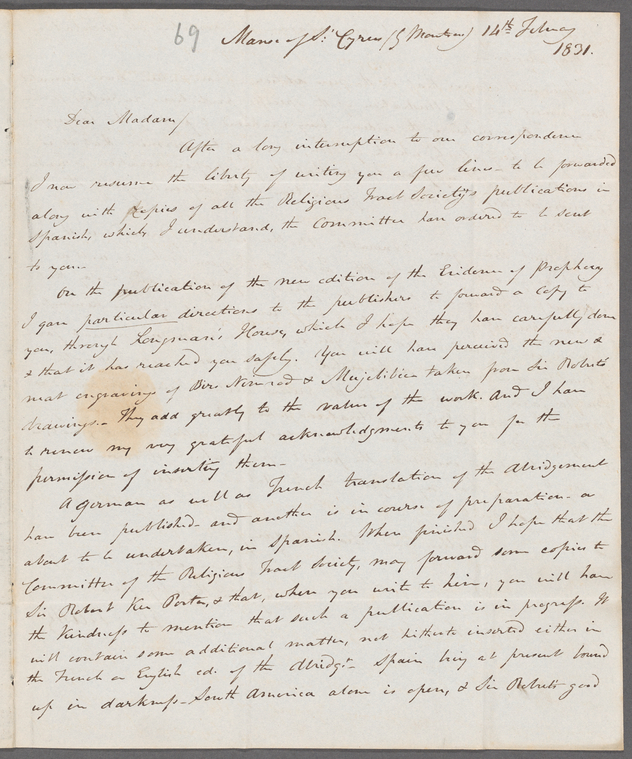 69
Manse of St. Cyrus (by Montrose) 14th Febuay
1831.
Dear Madam/
After a long interruption to our correspondence
I now resume the liberty of writing you a few lines - to be forwarded
along with copies of all the Religious Tract Society's publications in
Spanish, which, I understand, the Committee have ordered to be sent
to you.-
On the publication of the new edition of the Evidence of Prophecy
I gave particular directions to the publishers to forward a Copy to
you, through Longman's House, which I hope they have carefully done
& that it has reached you safely. You will have perceived the new &
neat engravings of Birs Nimrood & Mujelibèe taken from Sir Robert's
drawings.- They add greatly to the value of the work. And I have
to renew my very grateful acknowledgments to you for the
permission of inserting them.-
A German as well as French translation of the Abridgement
have been published - and another is in course of preparation - or
about to be undertaken, in Spanish. When finished I hope that the
Committee of the Religious Tract Society, may forward some copies to
Sir Robert Ker Porter, & that, when you write to him, you will have
the kindness to mention that such a publication is in progress. It
will contain some additional matter, not hitherto inserted either in
the French or English ed. of the Abridgt. - Spain being at present bound
up in darkness - South America alone is open, & Sir Robert's good